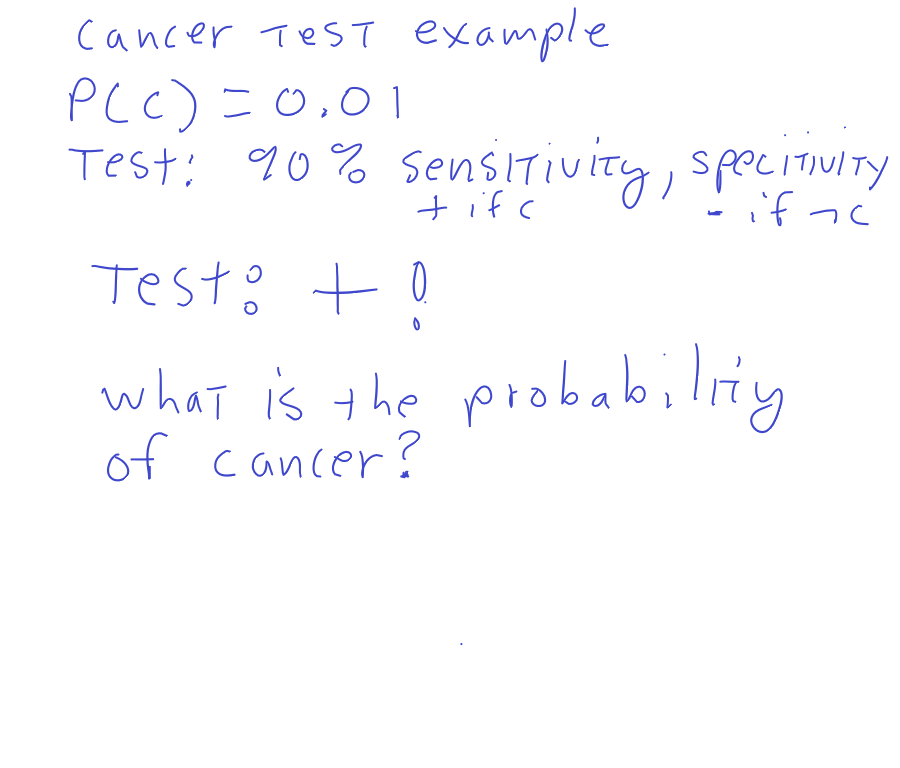 Cancer Test example
P(C) = 0.01
Test: 90% sensitivity, specitivity
+ if c - if ¬c
Test: + !
what is the probability
of cancer?